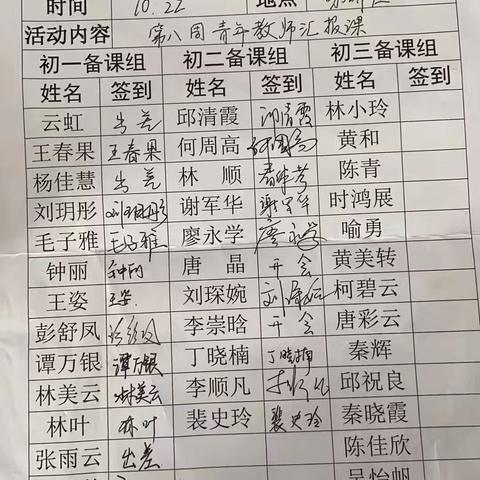 时间 10.22 地点
活动内容 第八周青年教师汇报课
初一备课组 初二备课组 初三备课组
姓名 签到 姓名 签到 姓名 签到
云虹 出差 邱清霞 邱清霞 林小玲
王春果 王春果 何周高 何周高 黄和
杨佳慧 出差 林顺 陈青
刘玥彤 刘玥彤 谢军华 谢军华 时鸿展
毛子雅 毛子雅 廖永学 廖永学 喻勇
钟丽 钟丽 唐晶 开会 黄美转
王姿 王姿 刘琛婉 刘琛婉 柯碧云
彭舒凤 彭舒凤 李崇晗 开会 唐彩云
谭万银 谭万银 丁晓楠 丁晓楠 秦辉
林美云 林美云 李顺凡 李顺凡 邱祝良
林叶 林叶 裴史玲 裴史玲 秦晓霞
张雨云 出差 陈佳欣
吴怡帆